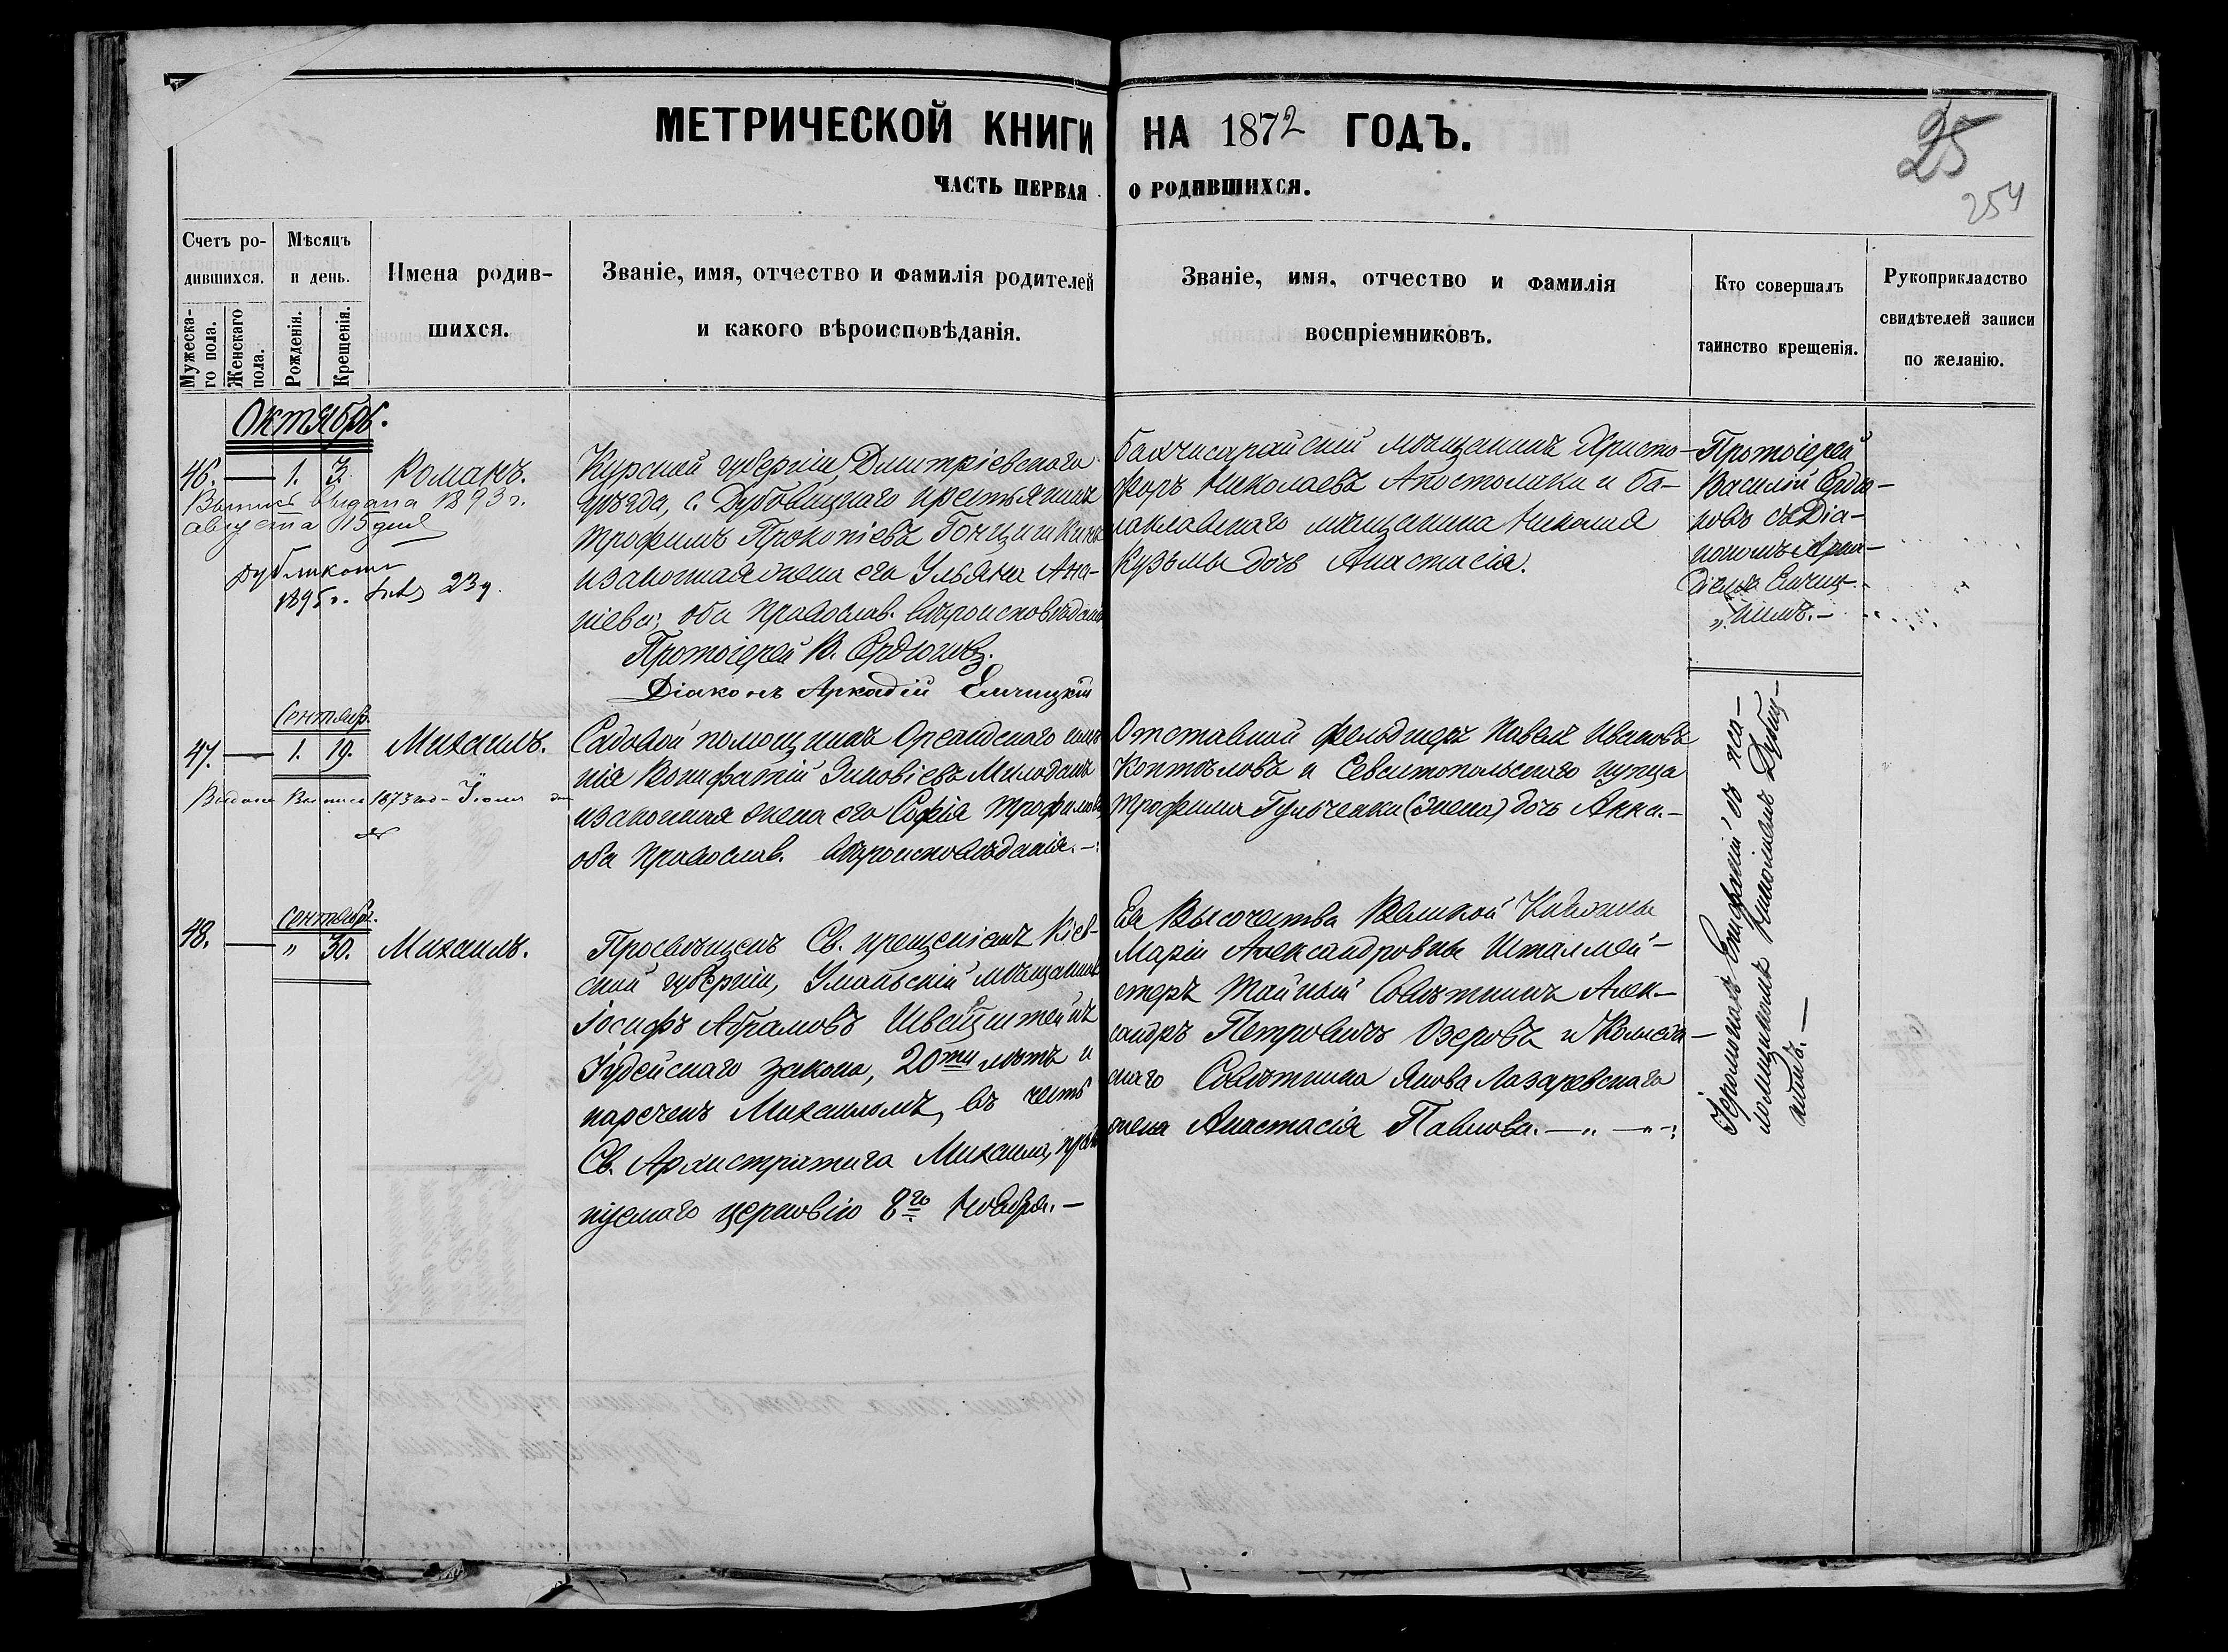 МЕТРИЧЕСКОЙ КНИГИ НА 1872 ГОДЪ.
ЧАСТЬ ПЕРВАЯ О РОДИВШИХСЯ.
25
254
Счетъ ро-
дившихся.
Мужеска-
го пола.
Женскаго
пола.
Мѣсяцъ
и день.
Рожденія.
Крещенія.
Имена родив-
шихся.
Званіе, имя, отчество и фамилія родителей
и какого вѣроисповѣданія.
Званіе, имя, отчество и фамилія
воспріемниковъ.
Кто совершалъ
таинство крещенія.
Рукоприкладство
свидѣтелей записи
по желанію.
Октябрь.
46. — 1. 3. Романъ.
Выпись выдана 1893 г.
августа 15 дня
Дубликатъ
1895 г. 23 д.
Курской губерніи Дмитріевскаго
уѣзда, с. Дубовицкаго крестьянинъ
Трофимъ Прокопіевъ
и законная жена его Ульяна Ана-
ніева, оба православ. вѣроисповѣданія
Протоіерей В.
Діаконъ Аркадій Емчицкій
Бахчисарайскій мѣщанинъ Христо-
форъ Николаевъ Апостолики и ба-
лаклавскаго мѣщанина Николая
Кузьмы дочь Анастасія.
Протоіерей
Василій
съ Діа-
кономъ Арка-
діемъ Емчиц-
кимъ.—
Сентябр.
47. — 1. 19. Михаилъ.
Выдана Выпись 1873 года Іюня
Садовой помощникъ Ореандскаго имѣ-
нія Вонифатій Зиновіевъ
и законная жена его Софія Трофимова,
оба православ. вѣроисповѣданія.—
Отставной фельдшеръ Павелъ Ивановъ
Коптѣловъ и Севастопольскаго купца
Трофима Гульченки (жена) дочь Анна.—
Сентябр.
48. — „ 30. Михаилъ.
Просвѣщенъ Св. крещеніемъ Кіев-
ской губерніи, Уманьскій мѣщанинъ
Іосифъ Абрамовъ Швейцштейнъ
Іудейскаго закона, 20ти лѣтъ и
нареченъ Михаиломъ, въ честь
Св. Архистратига Михаила, празд-
нуемаго церковію 8го Ноября.—
Ея Высочества Великой Княжны
Маріи Александровны Шталмей-
стеръ Тайный Совѣтникъ Алек-
сандръ Петровичъ Озеровъ и Коллеж-
скаго Совѣтника Якова Лазаревскаго
жена Анастасія Павлова.—
Іеромонахъ Епифаній съ пса-
ломщикомъ Николаемъ